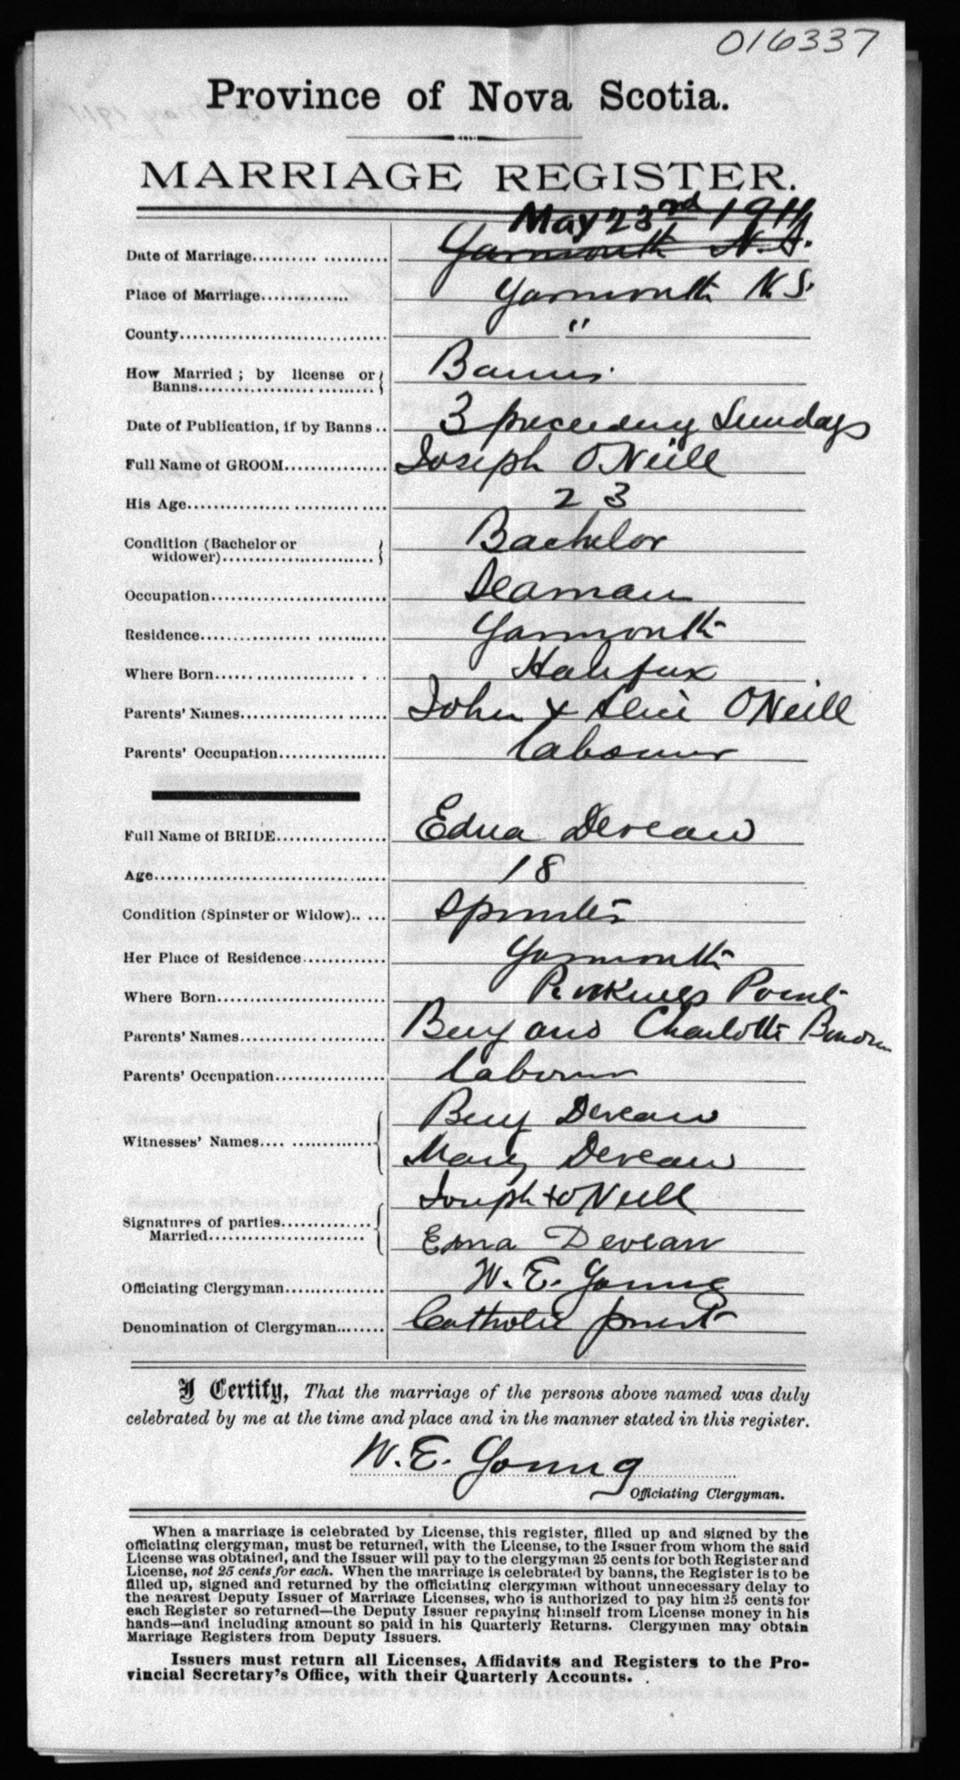 016337
Province of Nova Scotia.
MARRIAGE REGISTER.
May 23rd 1911
Date of Marriage.......... Yarmouth N.S.
Place of Marriage.............. Yarmouth N.S.
County................................ "
How Married ; by license or Banns.................... Banns.
Date of Publication, if by Banns .. 3 preceeding Sundays
Full Name of GROOM................ Joseph O'Neill
His Age................................ 23
Condition (Bachelor or widower)......................... Bachelor
Occupation............................ Seaman
Residence.............................. Yarmouth
Where Born........................... Halifax
Parents' Names....................... John & Alice O'Neill
Parents' Occupation................. labourer
Full Name of BRIDE................. Edna Deveau
Age..................................... 18
Condition (Spinster or Widow)..... Spinster
Her Place of Residence............. Yarmouth
Where Born........................... Point
Parents' Names....................... Benj and Charlotte
Parents' Occupation................. labourer
Benj Deveau
Witnesses' Names....................
Mary Deveau
Joseph x O'Neill
Signatures of parties..............
Married............................
Edna Deveau
Officiating Clergyman............... W. E. Young
Denomination of Clergyman........ Catholic priest
I Certify, That the marriage of the persons above named was duly
celebrated by me at the time and place and in the manner stated in this register.
W. E. Young
Officiating Clergyman.
When a marriage is celebrated by License, this register, filled up and signed by the
officiating clergyman, must be returned, with the License, to the Issuer from whom the said
License was obtained, and the Issuer will pay to the clergyman 25 cents for both Register and
License, not 25 cents for each. When the marriage is celebrated by banns, the Register is to be
filled up, signed and returned by the officiating clergyman without unnecessary delay to
the nearest Deputy Issuer of Marriage Licenses, who is authorized to pay him 25 cents for
each Register so returned—the Deputy Issuer repaying himself from License money in his
hands—and including amount so paid in his Quarterly Returns. Clergymen may obtain
Marriage Registers from Deputy Issuers.
Issuers must return all Licenses, Affidavits and Registers to the Pro-
vincial Secretary's Office, with their Quarterly Accounts.